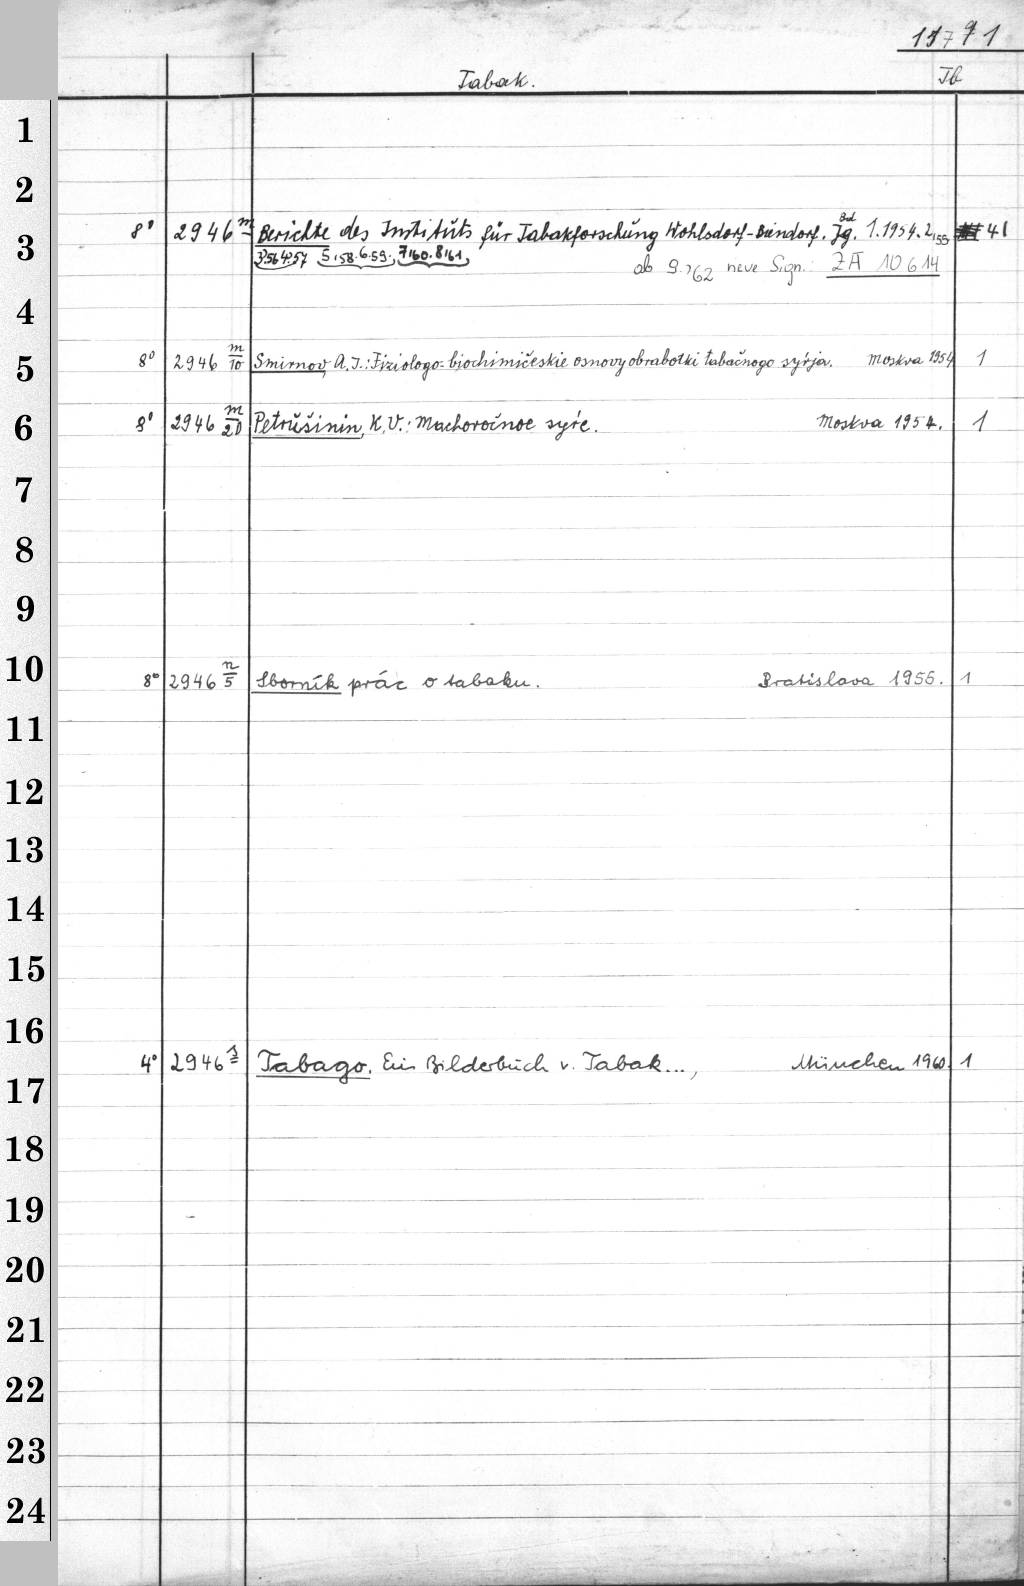 11791
Tabak.
Tb
1
2
Bd
3 8° 2946 m Berichte des Instituts für Tabakforschung Wohlsdorf-Biendorf. Jg. 1.1954. 2,55. 41
3,56 4,57 5,58. 6.59. 7,60. 8,61,
ab 9.,62 neue Sign.: ZA 10614
4
5 8° 2946 m/10 Smirnov, A. I.: Fiziologo-biochimičeskie osnovy obrabotki tabačnogo syŕja. Moskva 1954 1
6 8° 2946 m/20 Petrušinin, K. V.: Machoročnoe syŕe. Moskva 1954. 1
7
8
9
10 8° 2946 n/5 Sborník prác o tabaku. Bratislava 1955. 1
11
12
13
14
15
16
4° 2946 Tabago. Ein Bilderbuch v. Tabak..., München 1960. 1
17
18
19
20
21
22
23
24